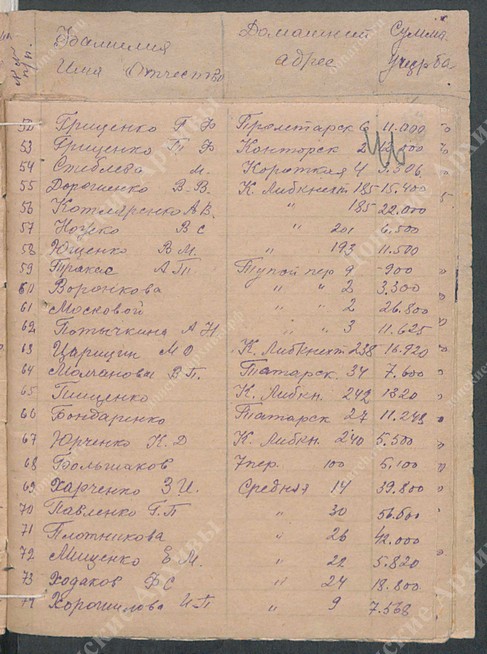 №№ п/п. Фамилия Имя Отчество Домашний адрес Сумма ущерба
52 Гриценко Г Ф Пролетарск 6 11.000
53 Гриценко П Ф Конторск 2
54 М. Короткая 4
55 Дорошенко В.В. К. Либкнехт 185 15.400
56 Котляренко А В. " 185 22.000
57 Ножко В С " 201 6.500
58 Ющенко В М. " 193 11.500
59 Тракас А П Тупой пер 9 900
60 Воронкова " " 2 3300
61 Московой " " 2 26.800
62 Потычкина А Н " " 3 11.625
63 Царицин М О К. Либкнехт 238 16.920
64 Молчанова В.П. Татарск. 34 7.600
65 Пищенко К. Либкн. 242 1820
66 Бондаренко Татарск 27 11.248
67 Юрченко К. Д К. Либкн. 240 5.500
68 Большаков 7 пер. 100 5.100
69 Харченко З.И. Средняя 14 39.800
70 Павленко Г.П " 30 56.500
71 Плотникова " 26 42.000
72 Мищенко Е. М. " 22 5.820
73 Ходаков Ф С " 24 18.800
74 Хорошилова И.П " 9 7.568